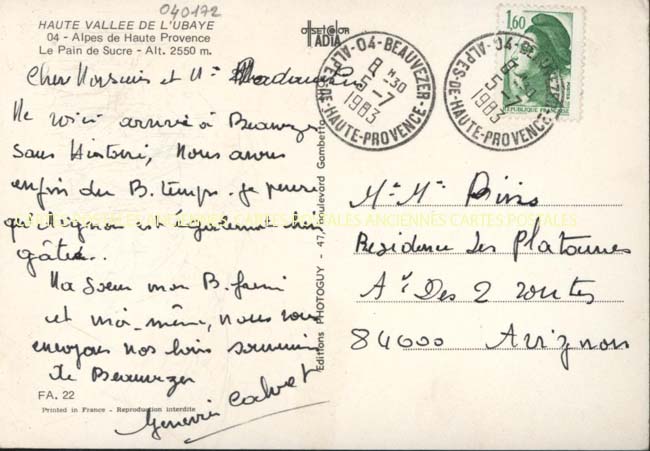 040172
HAUTE VALLEE DE L'UBAYE
04 - Alpes de Haute Provence
Le Pain de Sucre - Alt. 2550 m.
OFFSET COLOR
IADIA
04-BEAUVEZER
8 H 30
5-7
1983
ALPES-DE-HAUTE-PROVENCE
04-BEAUVEZER
8 H 30
5-7
1983
ALPES-DE-HAUTE-PROVENCE
1,60
REPUBLIQUE FRANÇAISE
Cher Monsieur et
Me voici arrivée à Beauvezer
sans Histoire, Nous avons
enfin du B. temps. je pense
qu'Avignon est également très
gâtée..
Ma Soeur mon B. frère
et moi-même, nous vous
envoyons nos bons souvenirs
de Beauvezer
Calvet
Mr Me
Residence Les Platanes
Av. Des 2 routes
84000 Avignon
CARTES POSTALES ANCIENNES CARTES POSTALES
Editions PHOTOGUY - 47, Boulevard Gambetta
FA. 22
Printed in France - Reproduction interdite